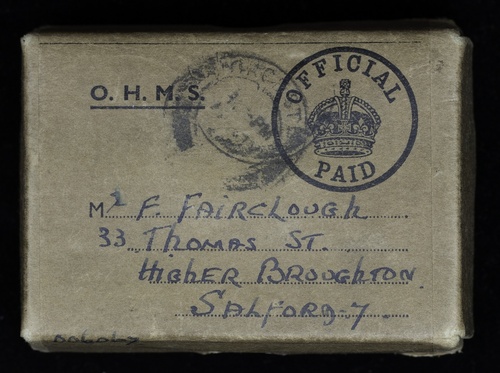 O. H. M. S.
OFFICIAL
PAID
Mr F. FAIRCLOUGH
33 THOMAS ST.
HIGHER BROUGHTON
SALFORD-7.